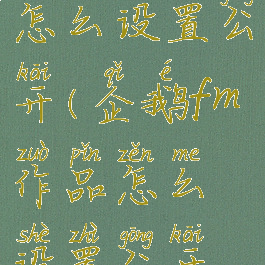 怎么设置公
kāi qǐ é
开(企鹅fm
zuò pǐn zěn me
作品怎么
shè zhì gōng kāi
设置公开